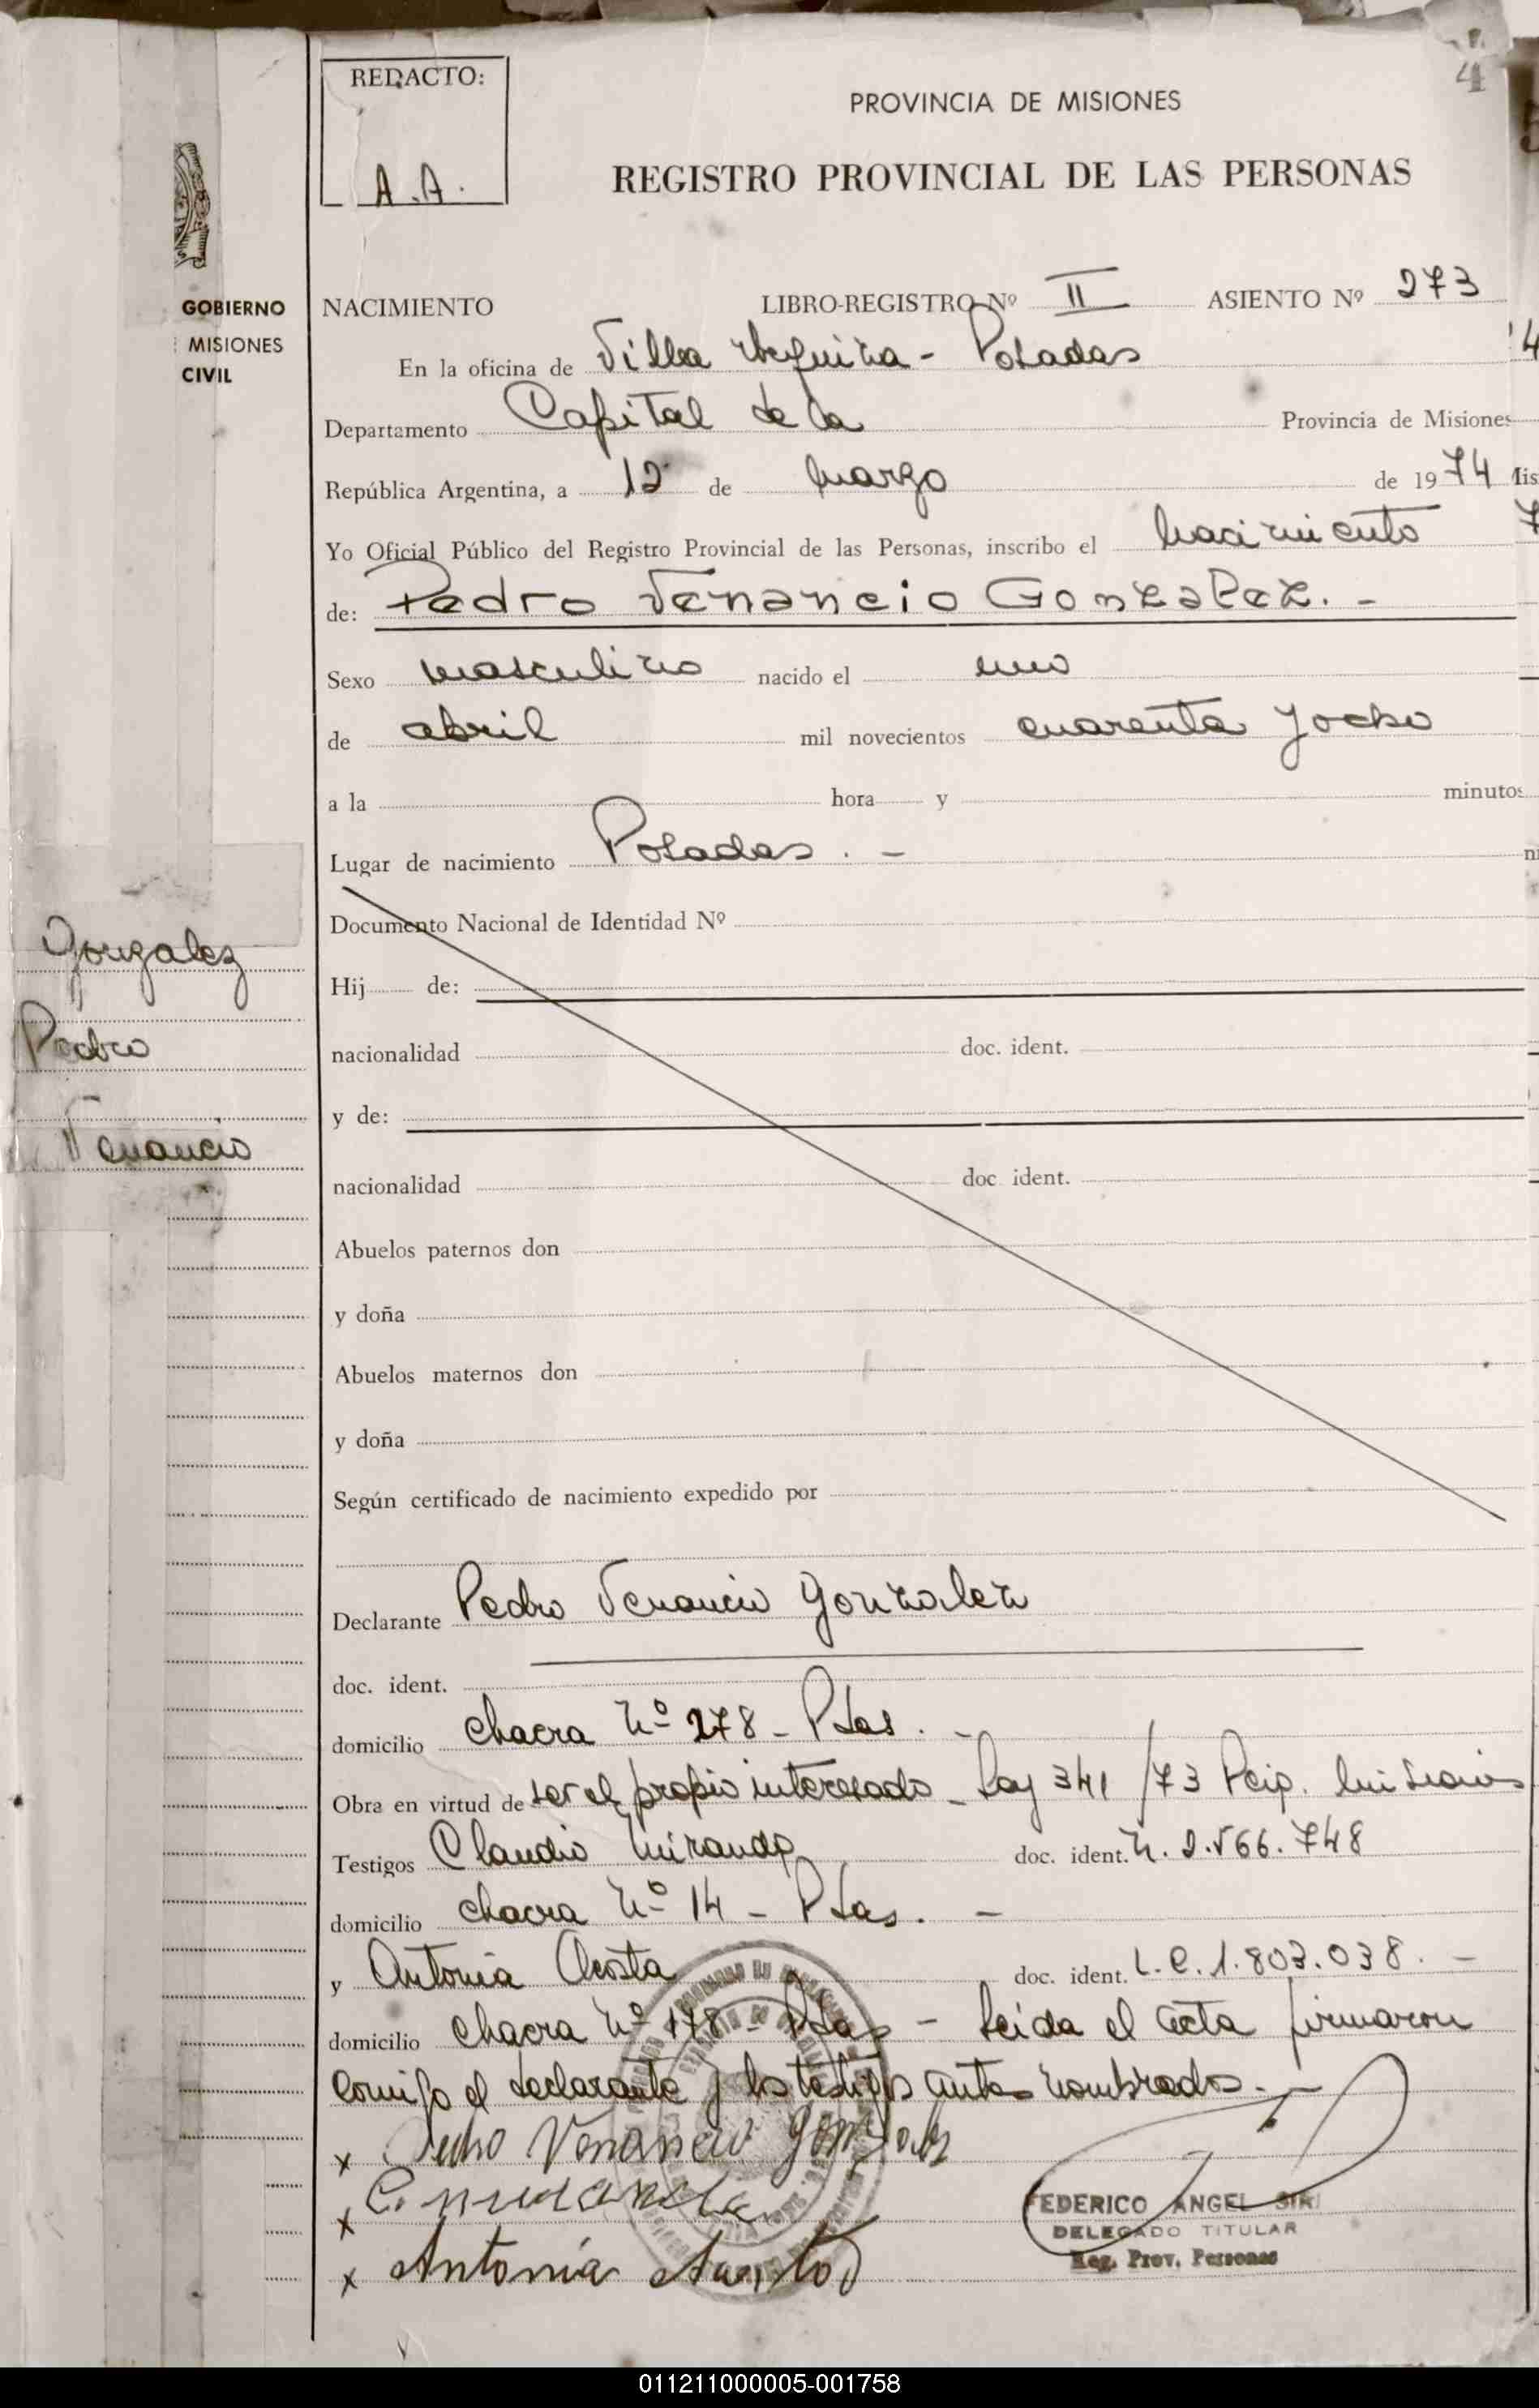 4
REDACTO:
A.A.
PROVINCIA DE MISIONES
REGISTRO PROVINCIAL DE LAS PERSONAS
GOBIERNO
MISIONES
CIVIL
NACIMIENTO LIBRO-REGISTRO Nº II ASIENTO Nº 273
En la oficina de Villa Urquiza - Posadas
Departamento Capital de la Provincia de Misiones
República Argentina, a 12 de marzo de 1974
Yo Oficial Público del Registro Provincial de las Personas, inscribo el nacimiento
de: Pedro Venancio Gonzalez. -
Sexo masculino nacido el uno
de abril mil novecientos cuarenta y ocho
a la hora y minutos
Lugar de nacimiento Posadas. -
Documento Nacional de Identidad Nº
Gonzalez
Pedro
Venancio
Hij de:
nacionalidad doc. ident.
y de:
nacionalidad doc ident.
Abuelos paternos don
y doña
Abuelos maternos don
y doña
Según certificado de nacimiento expedido por
Declarante Pedro Venancio Gonzalez
doc. ident.
domicilio chacra Nº 278 - Pdas. -
Obra en virtud de ser el propio interesado - Ley 341/73 Pcip. Misiones
Testigos Claudio Miranda doc. ident. M. 2.566.748
domicilio chacra Nº 14 - Pdas. -
y Antonia Acosta doc. ident. L.C. 1.803.038. -
domicilio chacra Nº 178 - Pdas - Leida el acta firmaron
conmigo el declarante y los testigos antes nombrados. -
x Pedro Venancio Gonzalez
x
x Antonia
FEDERICO ANGEL SIRI
DELEGADO TITULAR
Reg. Prov. Personas
011211000005-001758